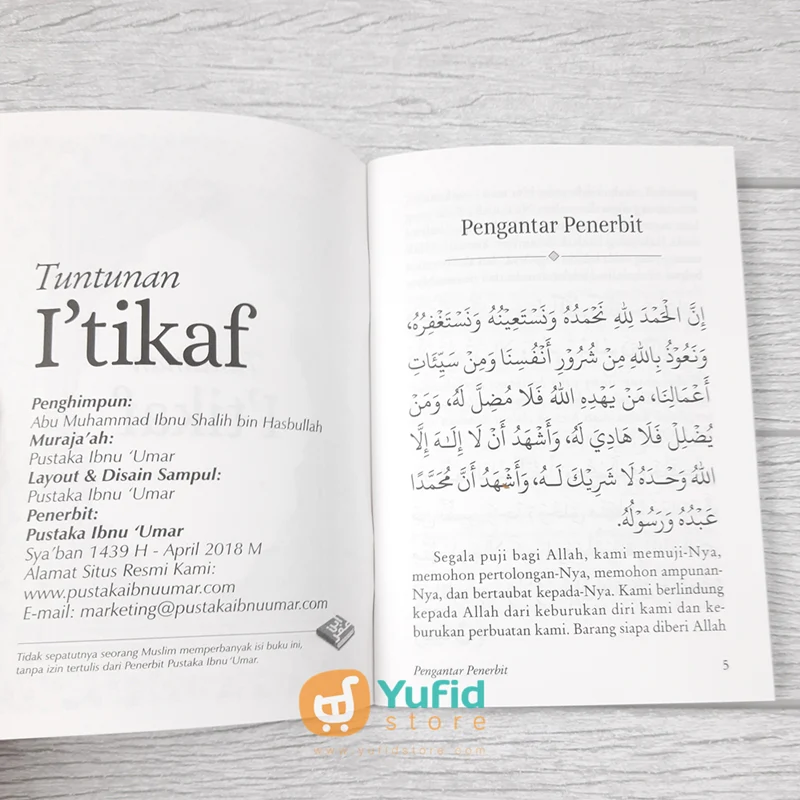 Tuntunan
I'tikaf
Penghimpun:
Abu Muhammad Ibnu Shalih bin Hasbullah
Muraja'ah:
Pustaka Ibnu 'Umar
Layout & Disain Sampul:
Pustaka Ibnu 'Umar
Penerbit:
Pustaka Ibnu 'Umar
Sya'ban 1439 H - April 2018 M
Alamat Situs Resmi Kami:
www.pustakaibnuumar.com
E-mail: marketing@pustakaibnuumar.com
Tidak sepatutnya seorang Muslim memperbanyak isi buku ini,
tanpa izin tertulis dari Penerbit Pustaka Ibnu 'Umar.
Pengantar Penerbit
إِنَّ الْحَمْدَ لِلَّهِ نَحْمَدُهُ وَنَسْتَعِيْنُهُ وَنَسْتَغْفِرُهُ،
وَنَعُوْذُ بِاللهِ مِنْ شُرُوْرِ أَنْفُسِنَا وَمِنْ سَيِّئَاتِ
أَعْمَالِنَا، مَنْ يَهْدِهِ اللهُ فَلَا مُضِلَّ لَهُ، وَمَنْ
يُضْلِلْ فَلَا هَادِيَ لَهُ، وَأَشْهَدُ أَنْ لَا إِلَـٰهَ إِلَّا
اللهُ وَحْدَهُ لَا شَرِيْكَ لَـهُ، وَأَشْهَدُ أَنَّ مُحَمَّدًا
عَبْدُهُ وَرَسُوْلُهُ.
Segala puji bagi Allah, kami memuji-Nya,
memohon pertolongan-Nya, memohon ampunan-
Nya, dan bertaubat kepada-Nya. Kami berlindung
kepada Allah dari keburukan diri kami dan ke-
burukan perbuatan kami. Barang siapa diberi Allah
Pengantar Penerbit 5
Yufid
store
www.yufidstore.com